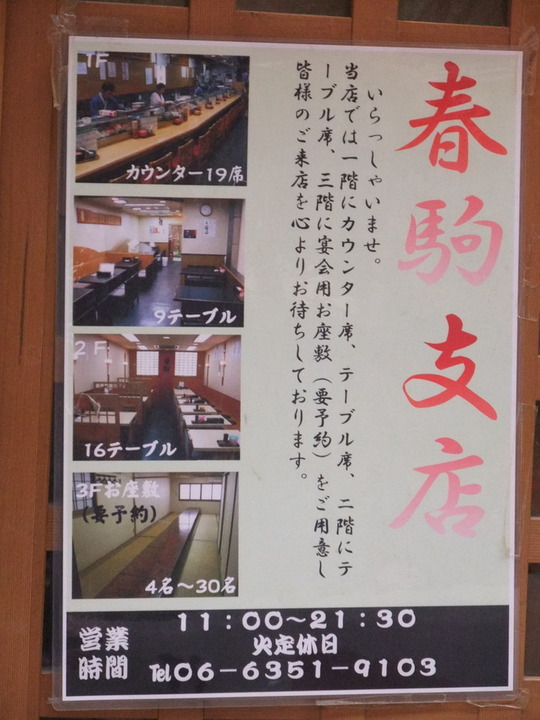 春駒支店
いらっしゃいませ。
当店では一階にカウンター席、テーブル席、二階にテ
ーブル席、三階に宴会用お座敷（要予約）をご用意し
皆様のご来店を心よりお待ちしております。
1F
カウンター19席
9テーブル
2F
16テーブル
3Fお座敷
（要予約）
4名～30名
営業
時間
11：00～21：30
火定休日
℡06－6351－9103